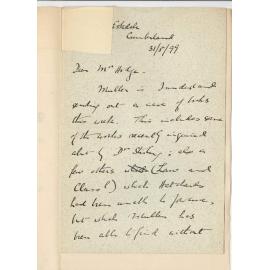 Eskdale
Cumberland
31/8/99
Dear Mr Hodge.
Muller is I understand
sending out a case of books
this week. This includes some
of the works recently inquired
about by Dr Stirling; also a
few others (Laws and
Class!) which Hatchards
had been unable to procure,
but which Muller has
been able to find without